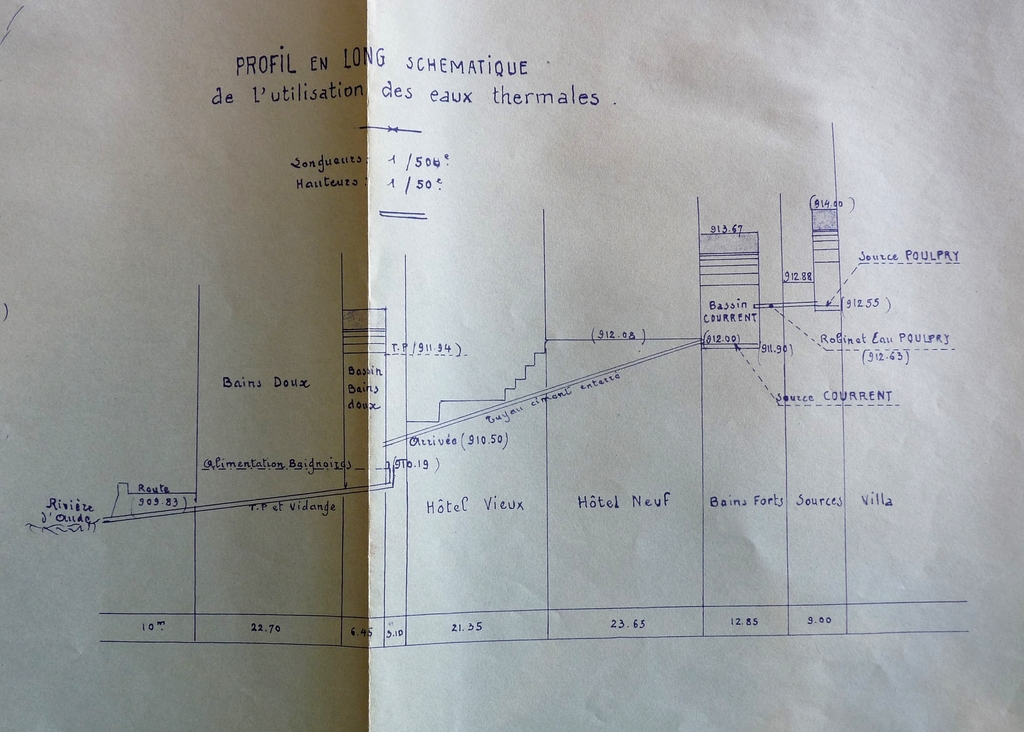 PROFIL EN LONG SCHEMATIQUE
de l'utilisation des eaux thermales.
Longueurs: 1/500e
Hauteurs: 1/50e
(914.00)
913.67
Source POULPRY
912.88
Bassin
COURRENT
(912.55)
T.P (911.94)
(912.08)
(912.00)
911.90)
Robinet Eau POULPRY
(912.63)
Bains Doux
Bassin
Bains
doux
Tuyau ciment enterré
Source COURRENT
Arrivée (910.50)
Alimentation Baignoires
(910.19)
Route
909.83)
Rivière
d'Aude
T.P et Vidange
Hôtel Vieux
Hôtel Neuf
Bains Forts
Sources
Villa
10m
22.70
6.45
3.10
21.35
23.65
12.85
9.00